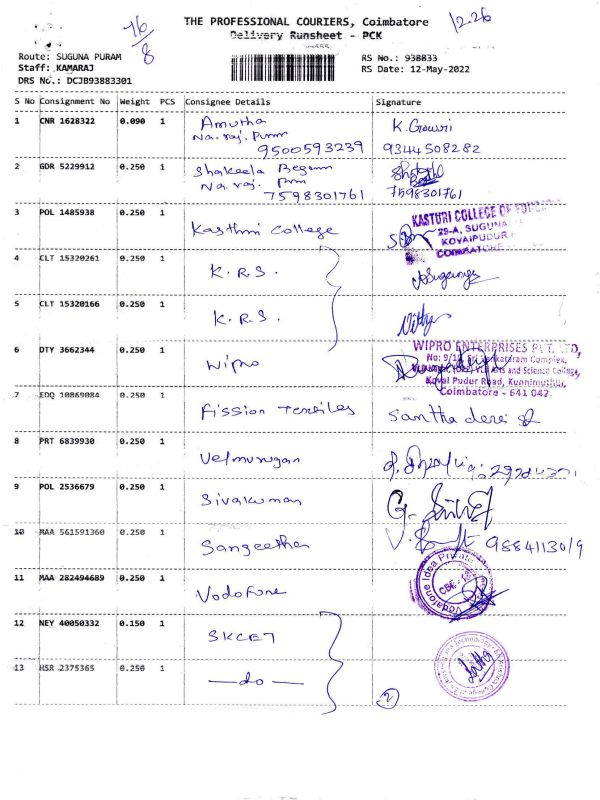 16/8
THE PROFESSIONAL COURIERS, Coimbatore
12.26
Delivery Runsheet - PCK
Route: SUGUNA PURAM
RS No.: 938833
Staff: KAMARAJ
RS Date: 12-May-2022
DRS No.: DCJB93883301
S No Consignment No Weight PCS Consignee Details Signature
1 CNR 1628322 0.090 1 Amutha K. Gowri
Na. raj. Puram
9500593239 9344508282
2 GDR 5229912 0.250 1 Shakeela Begam
Na. raj. Pm
7598301761 7598301761
3 POL 1485938 0.250 1 Kasthuri College
KASTURI COLLEGE OF
29-A, SUGUNA
KOVAIPUDUR
COIMBATORE
4 CLT 15320261 0.250 1 K. R. S.
5 CLT 15320166 0.250 1 K. R. S. Vithya
6 DTY 3662344 0.250 1 Wipro
WIPRO ENTERPRISES PVT. LTD,
No: 9/1 Sri Venkataram Complex,
Arts and Science College,
Kovai Pudur Road, Kunnimuthur,
Coimbatore - 641 042.
7 EDQ 10869084 0.250 1 Fission Texeiles Santha devi
8 PRT 6839930 0.250 1 Velmurugan
9 POL 2536679 0.250 1 Sivakumar
10 MAA 561591360 0.250 1 Sangeetha 9884113019
11 MAA 282494689 0.250 1 Vodofone
Vodafone Idea Private
CBE
12 NEY 40050332 0.150 1 SKCET
13 HSR 2375365 0.250 1 —do—
2